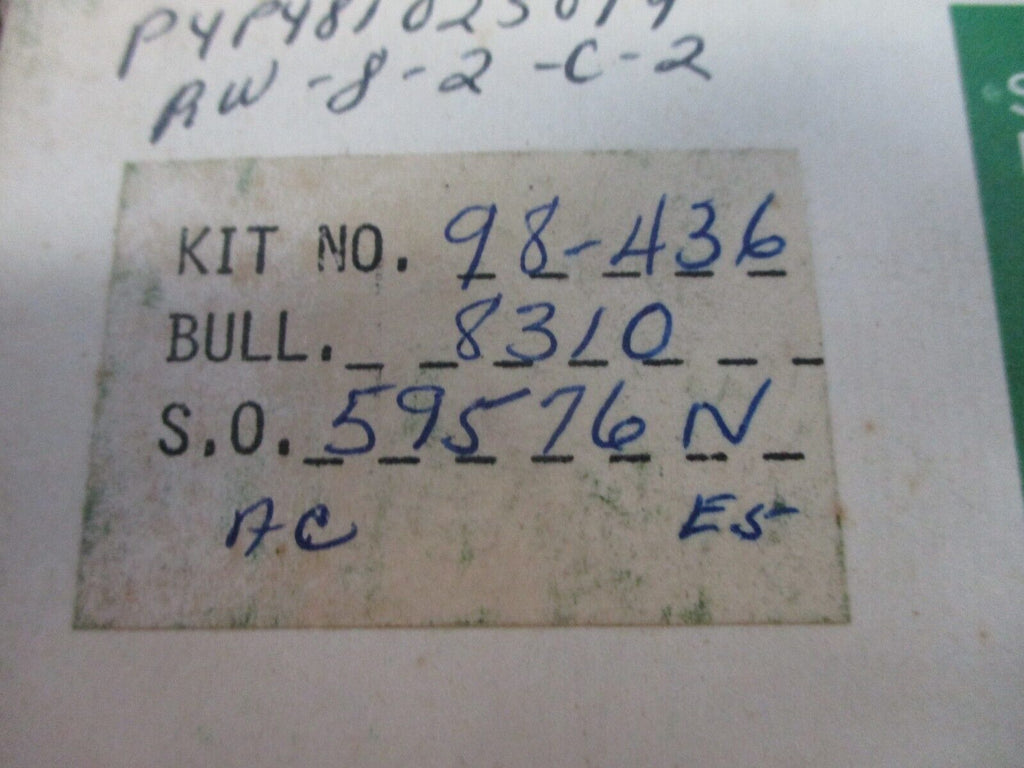 P4P481023019
RW-8-2-C-2
KIT NO. 98-436
BULL. 8310
S.O. 59576N
AC Es
S